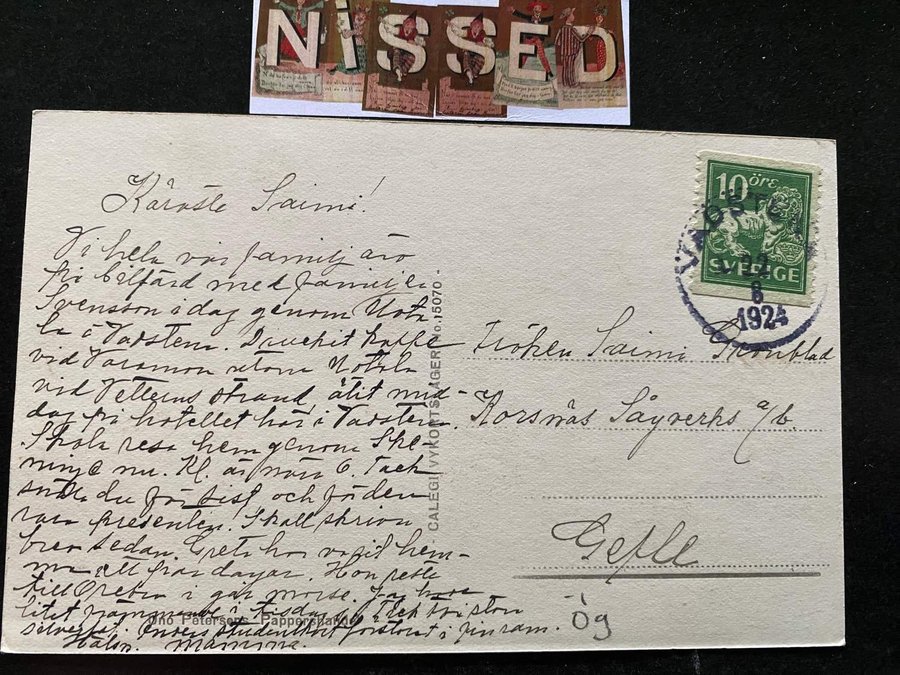 NISSED
10 öre
SVERIGE
VADSTENA
22
8
1924
Käraste Saimi!
Vi hela vår familj äro
på bilfärd med familjen
Svensson i dag genom Mota-
la i Vadstena. Druckit kaffe
vid Varamon utom Motala
vid Vetterns strand, ätit mid-
dag på hotellet här i Vadstena.
Skola resa hem genom Ske-
ninge nu. Kl. är nära 6. Tack
skall du för sist och för den
rara presenten! Skall skriva
brev sedan. Greta har varit hem-
ma ett par dagar. Hon reste
till Örebro i går morse.
litet främmande i tisdags.
i sin ram.
Mamma.
Fröken Saimi
Korsnäs Sågverks a/b.
Gefle
Ög
CALEGI VYKORTSLAGER No. 15070.
Uno Petersens Pappershandel